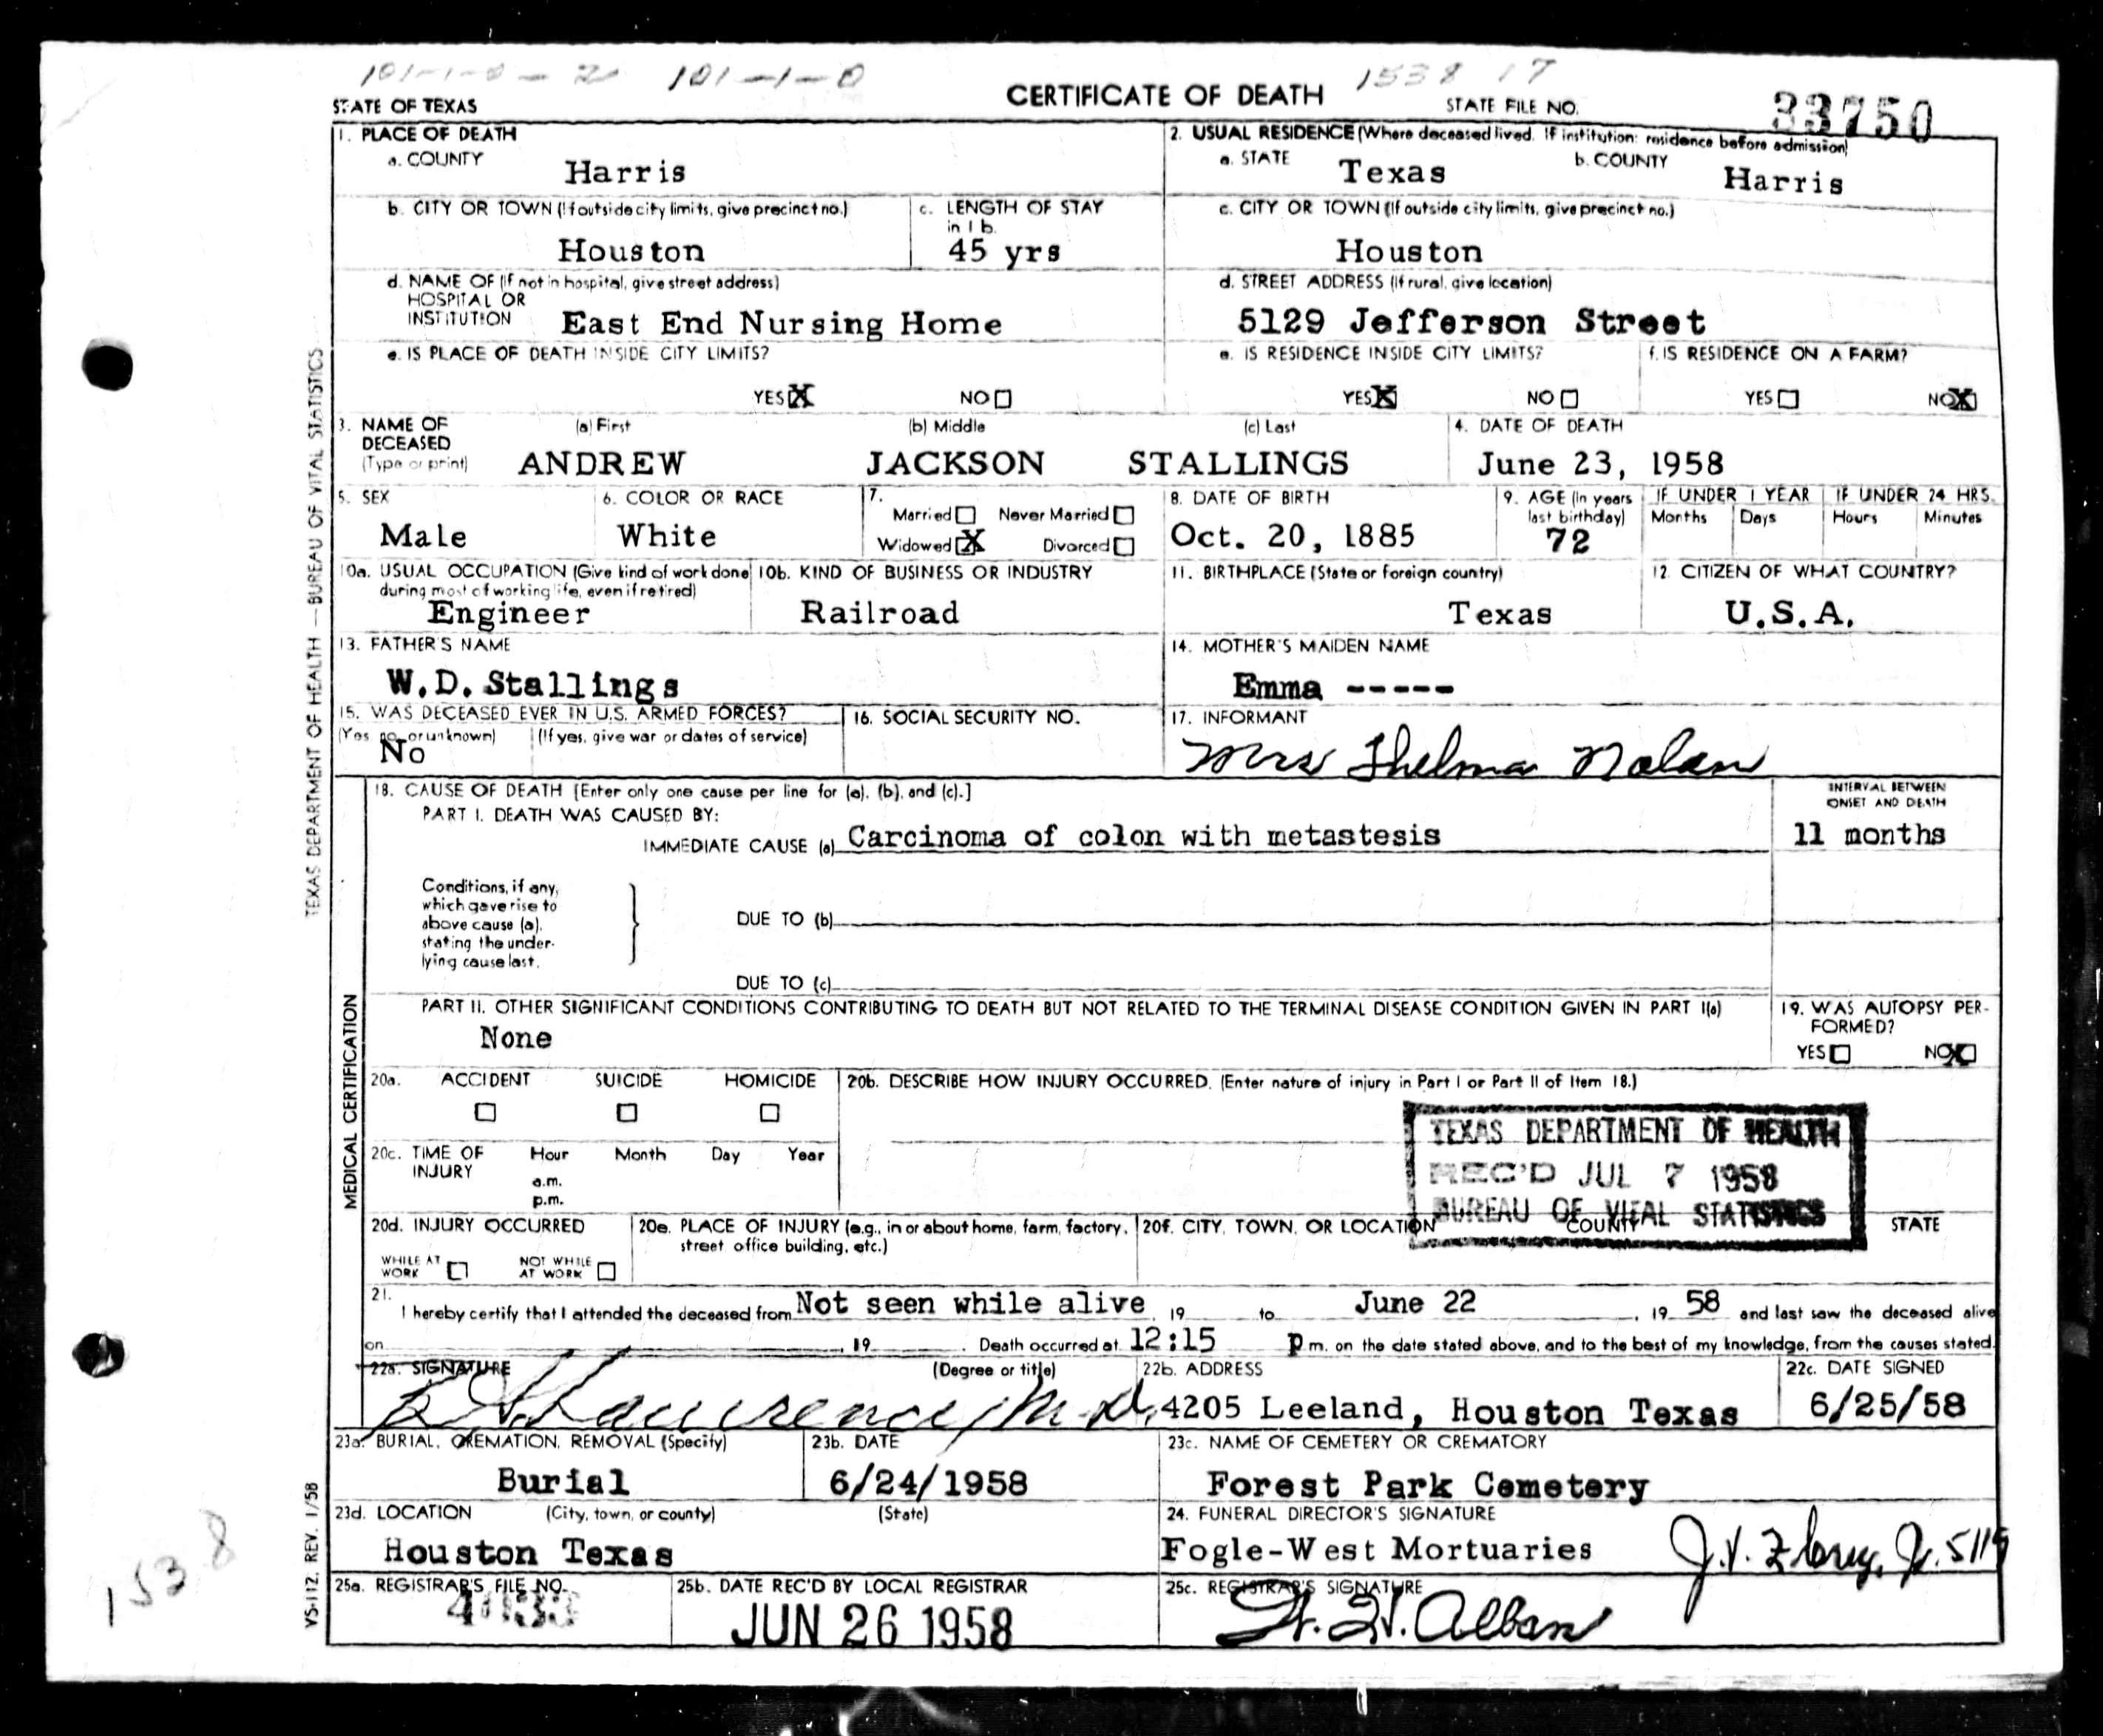 101-1-0-2 101-1-0 1538 17
STATE OF TEXAS CERTIFICATE OF DEATH STATE FILE NO. 33750
1. PLACE OF DEATH
a. COUNTY Harris
2. USUAL RESIDENCE (Where deceased lived. If institution: residence before admission)
a. STATE Texas b. COUNTY Harris
b. CITY OR TOWN (If outside city limits, give precinct no.) Houston
c. LENGTH OF STAY in 1 b. 45 yrs
c. CITY OR TOWN (If outside city limits, give precinct no.) Houston
d. NAME OF (If not in hospital, give street address)
HOSPITAL OR
INSTITUTION East End Nursing Home
d. STREET ADDRESS (If rural, give location)
5129 Jefferson Street
e. IS PLACE OF DEATH INSIDE CITY LIMITS?
YES X NO
e. IS RESIDENCE INSIDE CITY LIMITS?
YES X NO
f. IS RESIDENCE ON A FARM?
YES NO X
3. NAME OF DECEASED (Type or print)
(a) First (b) Middle (c) Last
ANDREW JACKSON STALLINGS
4. DATE OF DEATH
June 23, 1958
5. SEX
Male
6. COLOR OR RACE
White
7.
Married Never Married
Widowed X Divorced
8. DATE OF BIRTH
Oct. 20, 1885
9. AGE (In years last birthday)
72
IF UNDER 1 YEAR
Months Days
IF UNDER 24 HRS.
Hours Minutes
10a. USUAL OCCUPATION (Give kind of work done during most of working life, even if retired)
Engineer
10b. KIND OF BUSINESS OR INDUSTRY
Railroad
11. BIRTHPLACE (State or foreign country)
Texas
12. CITIZEN OF WHAT COUNTRY?
U.S.A.
13. FATHER'S NAME
W.D. Stallings
14. MOTHER'S MAIDEN NAME
Emma -----
15. WAS DECEASED EVER IN U.S. ARMED FORCES?
(Yes, no, or unknown) (If yes, give war or dates of service)
No
16. SOCIAL SECURITY NO.
17. INFORMANT
Mrs Thelma Nolan
18. CAUSE OF DEATH [Enter only one cause per line for (a), (b), and (c).]
INTERVAL BETWEEN
ONSET AND DEATH
PART I. DEATH WAS CAUSED BY:
IMMEDIATE CAUSE (a) Carcinoma of colon with metastesis 11 months
Conditions, if any,
which gave rise to
above cause (a),
stating the under-
lying cause last.
DUE TO (b)
DUE TO (c)
PART II. OTHER SIGNIFICANT CONDITIONS CONTRIBUTING TO DEATH BUT NOT RELATED TO THE TERMINAL DISEASE CONDITION GIVEN IN PART I(a)
None
19. WAS AUTOPSY PER-
FORMED?
YES NO X
20a. ACCIDENT SUICIDE HOMICIDE
20b. DESCRIBE HOW INJURY OCCURRED. (Enter nature of injury in Part I or Part II of Item 18.)
TEXAS DEPARTMENT OF HEALTH
REC'D JUL 7 1958
BUREAU OF VITAL STATISTICS
20c. TIME OF INJURY
Hour Month Day Year
a.m.
p.m.
20d. INJURY OCCURRED
WHILE AT WORK NOT WHILE AT WORK
20e. PLACE OF INJURY (e.g., in or about home, farm, factory, street office building, etc.)
20f. CITY, TOWN, OR LOCATION COUNTY STATE
21.
I hereby certify that I attended the deceased from Not seen while alive, 19 to June 22, 19 58 and last saw the deceased alive
on , 19 . Death occurred at 12:15 p m. on the date stated above, and to the best of my knowledge, from the causes stated.
22a. SIGNATURE (Degree or title)
Lawrence, M.D.
22b. ADDRESS
4205 Leeland, Houston Texas
22c. DATE SIGNED
6/25/58
23a. BURIAL, CREMATION, REMOVAL (Specify)
Burial
23b. DATE
6/24/1958
23c. NAME OF CEMETERY OR CREMATORY
Forest Park Cemetery
23d. LOCATION (City, town, or county) (State)
Houston Texas
24. FUNERAL DIRECTOR'S SIGNATURE
Fogle-West Mortuaries
25a. REGISTRAR'S FILE NO.
25b. DATE REC'D BY LOCAL REGISTRAR
JUN 26 1958
25c. REGISTRAR'S SIGNATURE
Alban
TEXAS DEPARTMENT OF HEALTH — BUREAU OF VITAL STATISTICS
MEDICAL CERTIFICATION
VS-112, REV. 1/58
1538